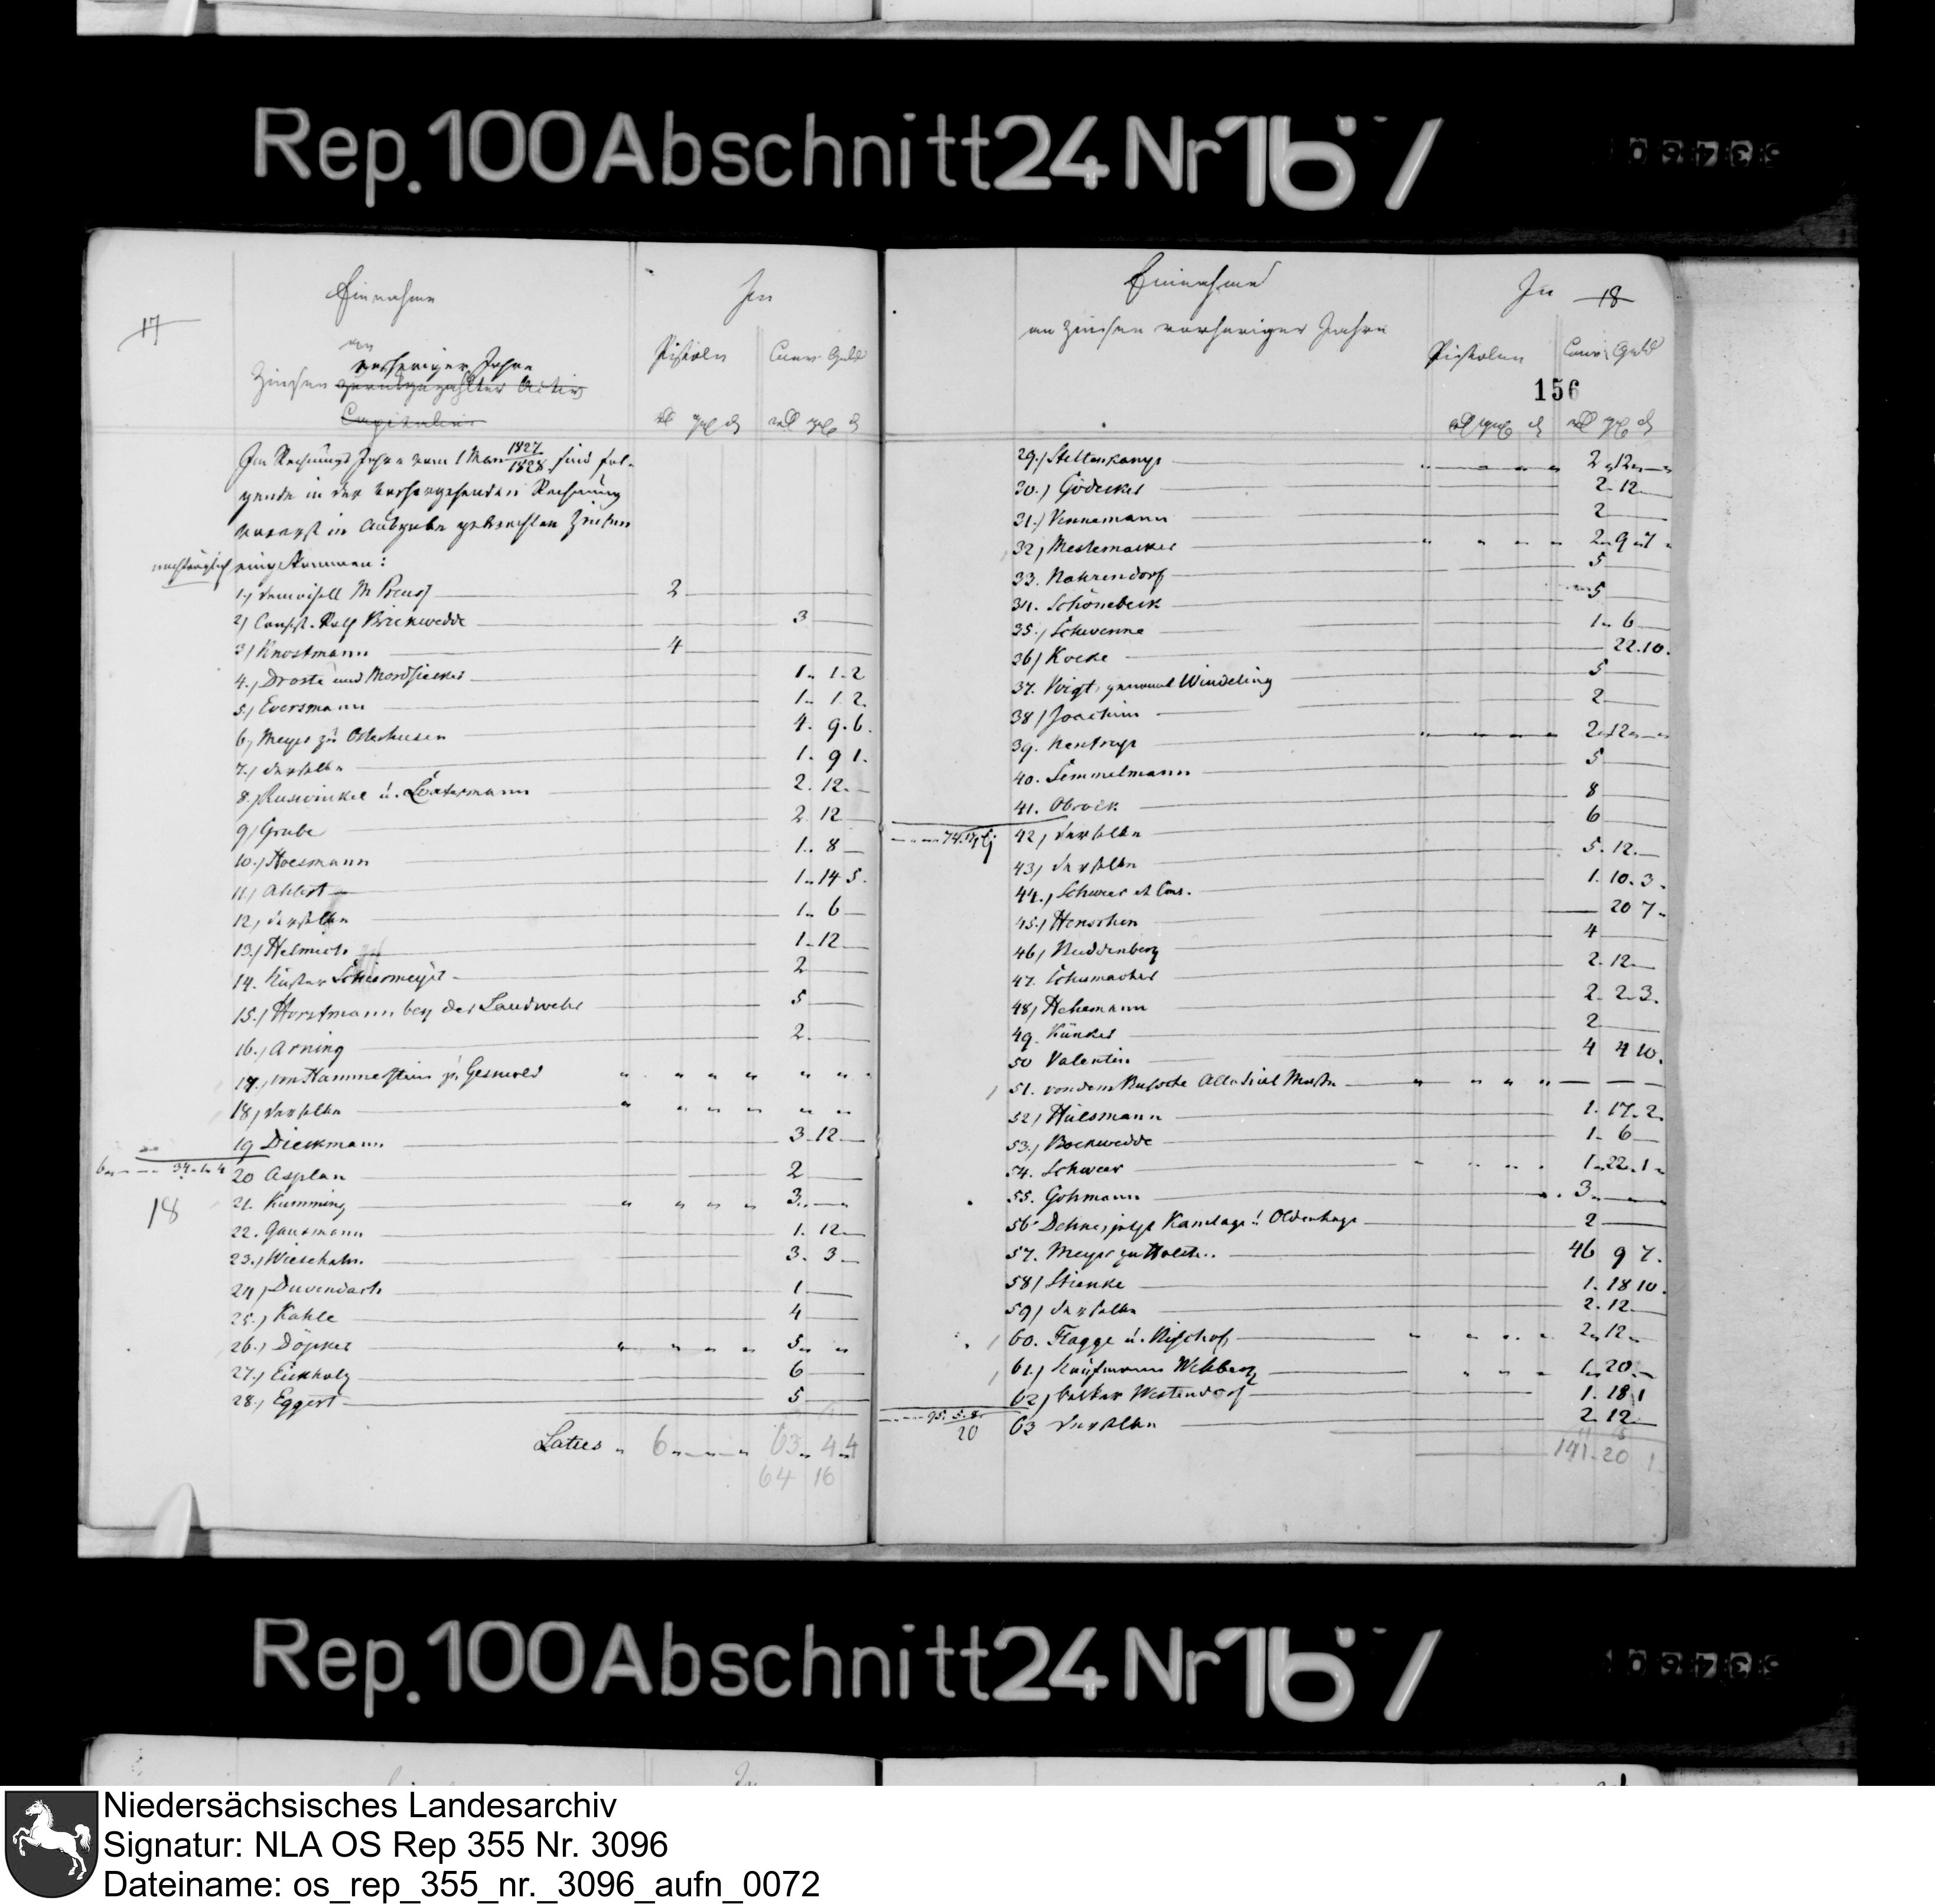 Rep. 100 Abschnitt 24 Nr 167
17
Einnahme
In
von
vorheriger Jahre
Zinsen zurückgezahlter Activ
Capitalien
Pistolen
Conv. Geld
Im Rechnungs Jahre vom 1 May 1827/1828 sind fol-
gende in der vorhergehenden Rechnung
in Ausgabe gebrachten Zinsen
nachträglich eingekommen:
1.) Demoisell M Preuss 2
2) Consist. Rath Brickwedde 3
3) Knostmann 4
4.) Droste und Nordsieker 1. 1. 2
5) Eversmann 1. 1. 2.
6.) Meyer zu Osterhusen 4. 9. 6.
7.) derselbe 1. 9 1.
8.) Ruswinkel u. Lostermann 2. 12.
9) Grube 2 12
10.) Hoesmann 1. 8
11.) Ahlert 1. 14 5.
12.) derselbe 1. 6
13.) Helmich 1. 12
14. Küster Schiermeyer 2
15.) Horstmann bey der Landwehr 5
16.) Arning 2.
17.) von Hammerstein zu Gesmold
18.) derselbe
19 Dieckmann 3. 12
6 34. 1. 4
20 Asplan 2
18
21. Kumming 3
22. Gausmann 1. 12
23.) Wiesehahn 3. 3
24.) Duvendack 1
25.) Kahle 4
26.) Döpker 5
27.) Eickholz 6
28.) Eggert 5
Latus 6 63. 4. 4
64 16
Einnahme
In
18
an Zinsen vorheriger Jahre
Pistolen
Conv. Geld
156
29.) Steltenkamp 2. 12
30.) Gödecker 2. 12
31.) Vennemann 2
32.) Mestemacker 2. 9. 7
33. Nahrendorf 5
34. Schönebeck 5
35.) Schwenne 1. 6
36) Kocke 22. 10.
37. Voigt, genannt Windeling 5
38) Joachim 2
39. Nentrup 2. 12
40. Semmelmann 5
41. Obrock 8
42.) derselbe 6
43.) derselbe 5. 12.
44.) Schweer et Cons. 1. 10. 3.
45.) Henschen 20 7.
46.) Nuddenberg 4
47. Schumacher 2. 12
48) Hehemann 2. 2. 3.
49. Künker 2
50 Valentin 4 4 10.
51. von dem Bussche
52) Hülsmann 1. 17. 2.
53.) Bockwedde 1. 6
54. Schweer 1. 22. 1
55. Gohmann 3
56 2
57. Meyer zu Holte 46 9 7.
58) Stienke 1. 18 10.
59) derselbe 2. 12
60. Flagge u. Bischof 2. 12
61.) Kaufmann Wehberg 1. 20
62.) Westendorf 1. 18 1
95. 5. 8.
20
63 derselbe 2. 12
141. 20 1
Rep. 100 Abschnitt 24 Nr 167
Niedersächsisches Landesarchiv
Signatur: NLA OS Rep 355 Nr. 3096
Dateiname: os_rep_355_nr._3096_aufn_0072